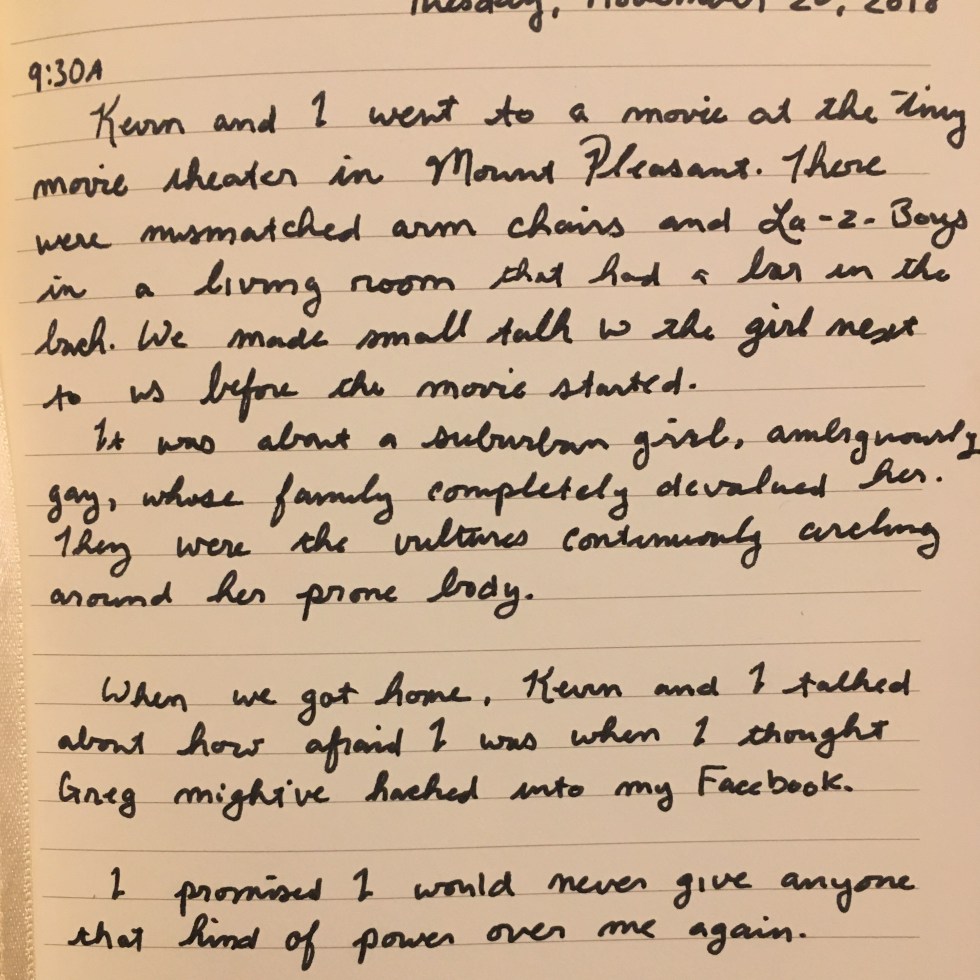 Tuesday, November 20, 2018
9:30A
Kevin and I went to a movie at the tiny
movie theater in Mount Pleasant. There
were mismatched arm chairs and La-z-Boys
in a living room that had a bar in the
back. We made small talk w the girl next
to us before the movie started.
It was about a suburban girl, ambiguously
gay, whose family completely devalued her.
They were the vultures continuously circling
around her prone body.
When we got home, Kevin and I talked
about how afraid I was when I thought
Greg might've hacked into my Facebook.
I promised I would never give anyone
that kind of power over me again.